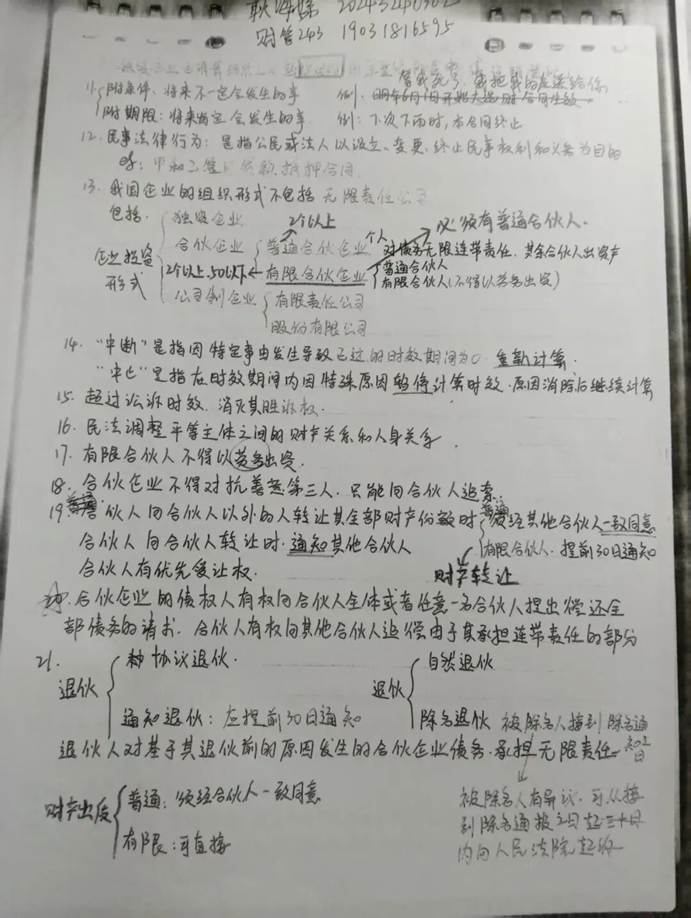 财管243 19031816595
11. 附条件：将来不一定会发生的事 例：
附期限：将来肯定会发生的事 例：下次下雨时，本合同终止
12. 民事法律行为：是指公民或法人以设立、变更、终止民事权利和义务为目的
13. 我国企业的组织形式不包括 无限责任公司
包括.
企业投资形式
独资企业
合伙企业
2个以上
普通合伙企业
个人
对债务无限连带责任.
必须有普通合伙人.
2个以上,50以下
有限合伙企业
普通合伙人
有限合伙人(不得以劳务出资)
公司制企业
有限责任公司
股份有限公司
14. "中断"是指因特定事由发生导致已过的时效期间为0 重新计算.
"中止"是指在时效期间内因特殊原因暂停计算时效.原因消除后继续计算
15. 超过讼诉时效.消灭其胜诉权.
16. 民法调整平等主体之间的财产关系和人身关系.
17. 有限合伙人不得以劳务出资.
18. 合伙企业不得对抗善意第三人.只能向合伙人追索.
19. 合伙人向合伙人以外的人转让其全部财产份额时
普通
须经其他合伙人一致同意
有限合伙人.提前30日通知
合伙人向合伙人转让时.通知其他合伙人
合伙人有优先受让权.
财产转让
合伙企业的债权人有权向合伙人全体或者任意一名合伙人提出偿还全
部债务的请求.合伙人有权向其他合伙人追偿由于其承担连带责任的部分
21.
退伙
协议退伙.
通知退伙：应提前30日通知
退伙
自然退伙
除名退伙 被除名人接到除名通知之日
退伙人对基于其退伙前的原因发生的合伙企业债务.承担无限责任
财产出质
普通：须经合伙人一致同意
有限：可直接
被除名人有异议.可从接
到除名通报之日起三十日
内向人民法院起诉